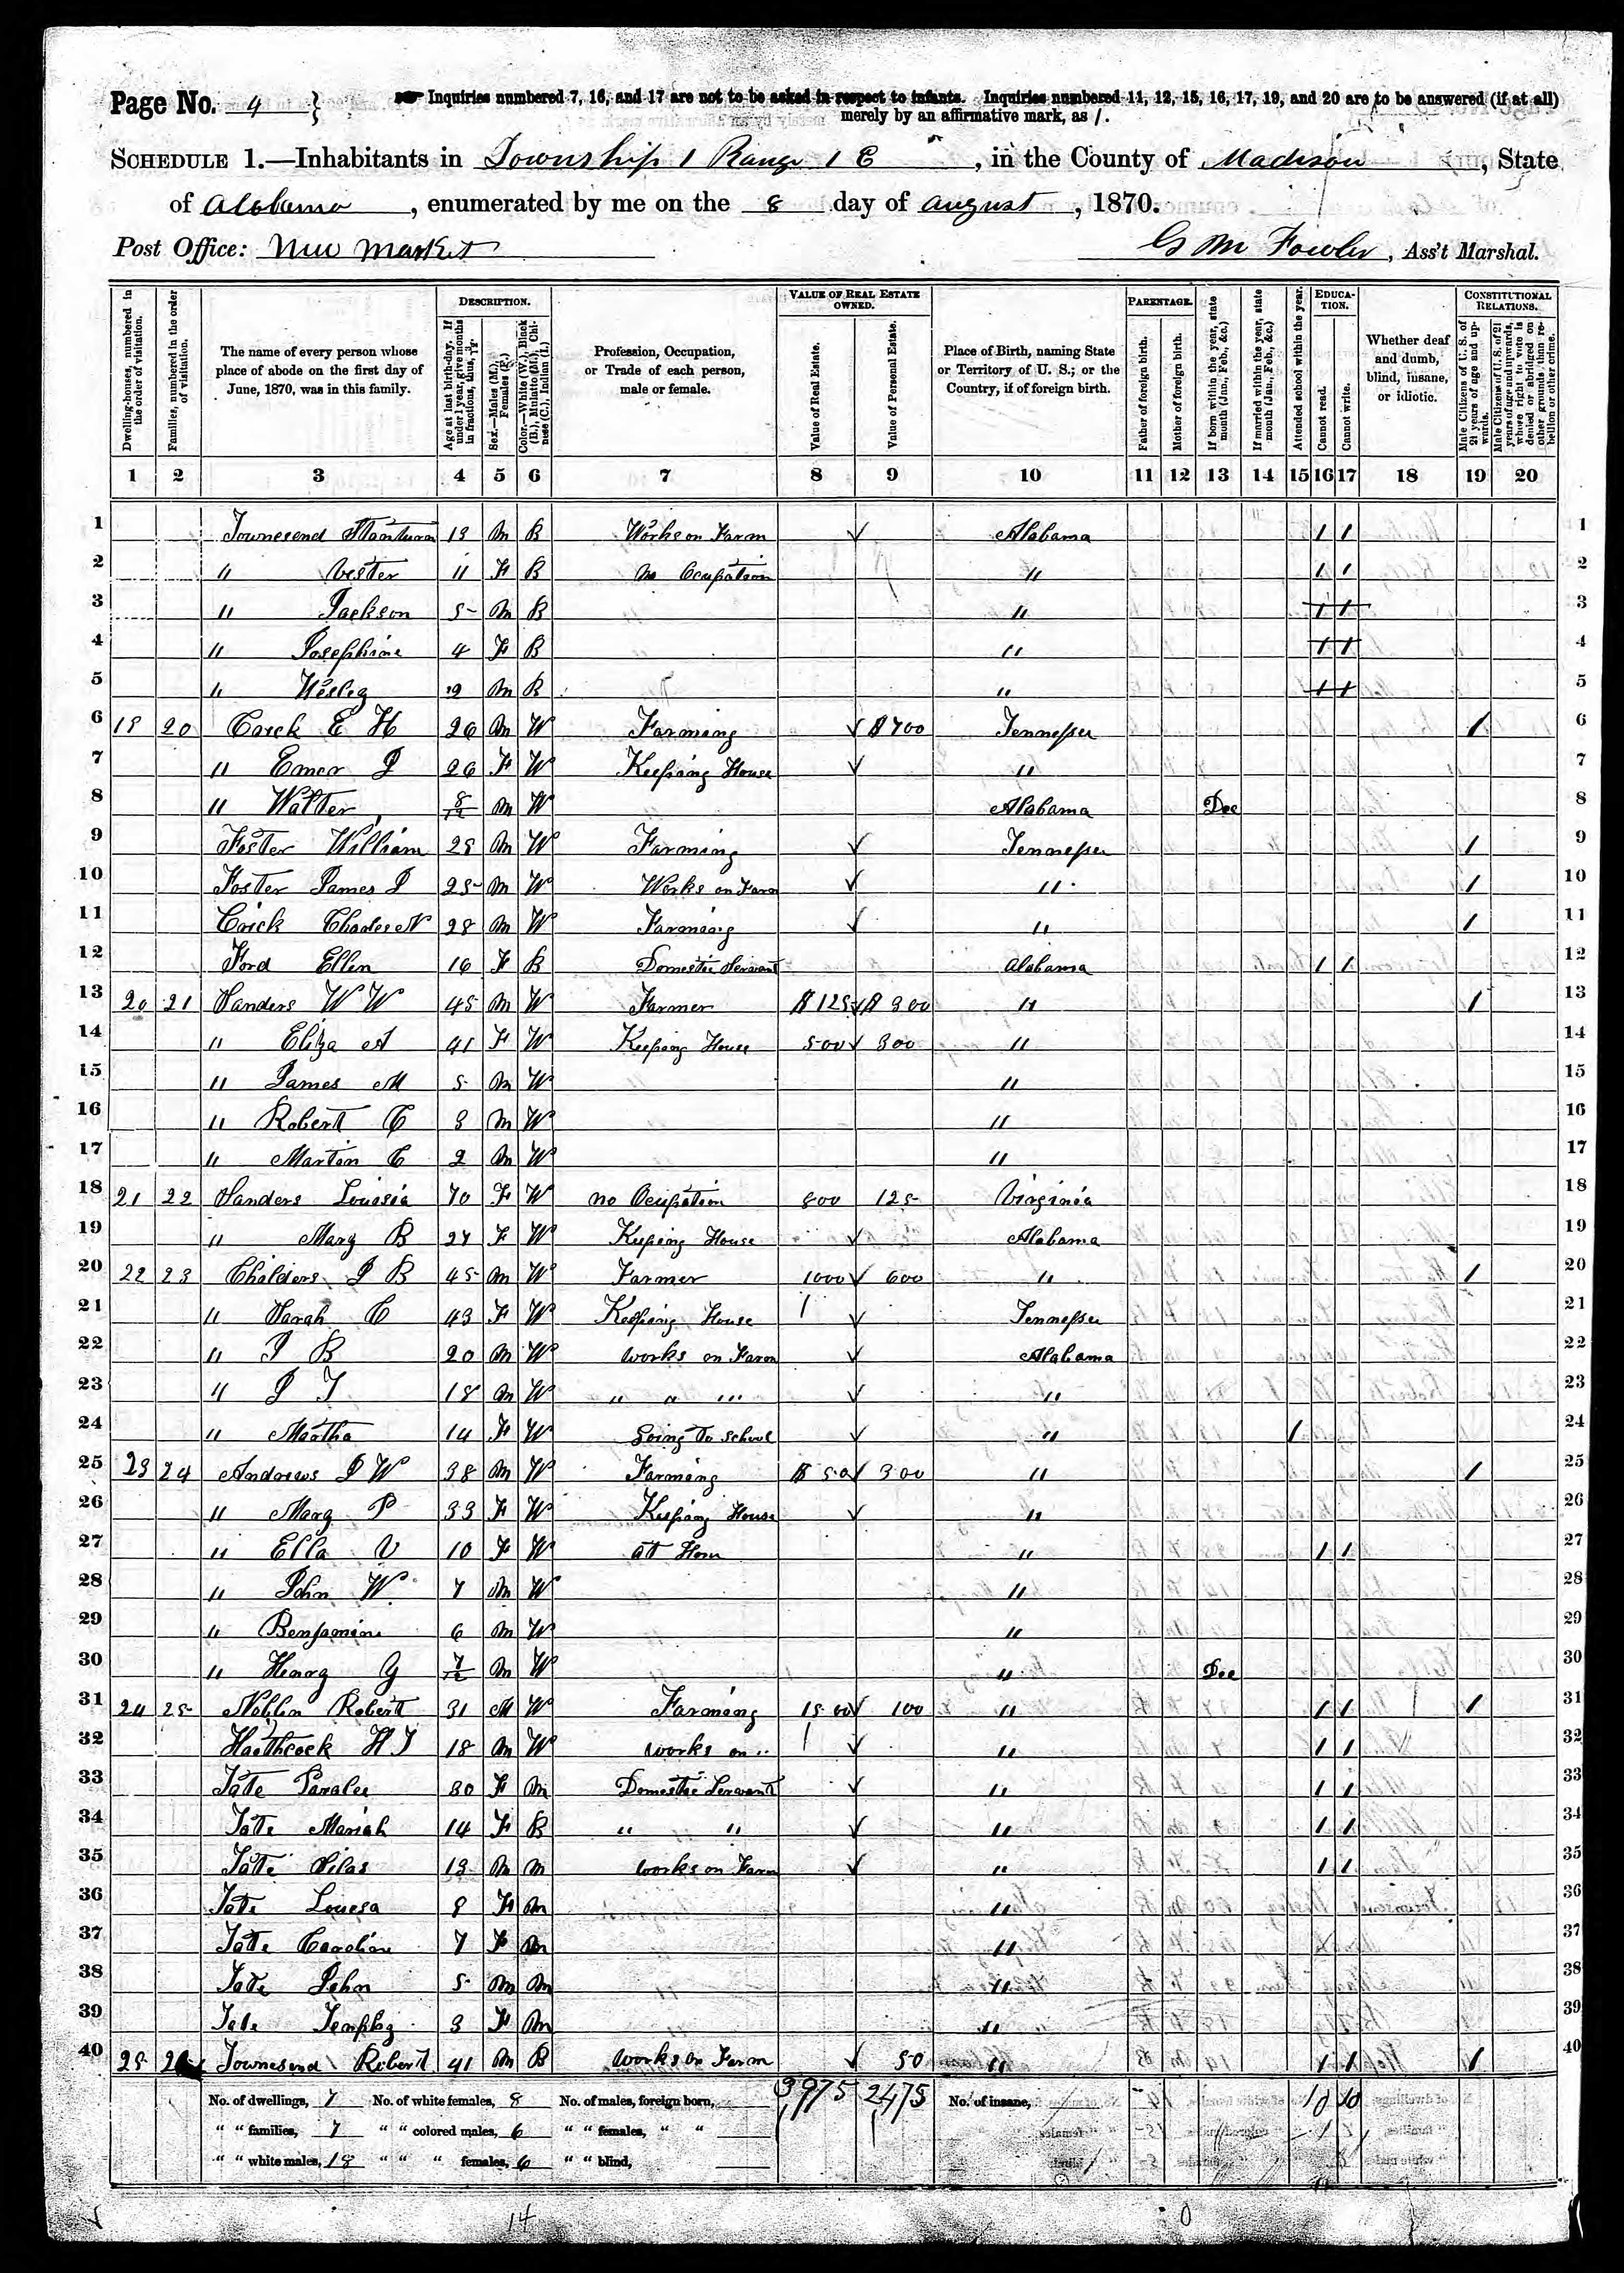 Page No. 4 } Inquiries numbered 7, 16, and 17 are not to be asked in respect to infants. Inquiries numbered 11, 12, 15, 16, 17, 19, and 20 are to be answered (if at all)
merely by an affirmative mark, as /.
SCHEDULE 1.—Inhabitants in Township 1 Range 1 E, in the County of Madison, State
of Alabama, enumerated by me on the 8 day of August, 1870.
Post Office: New Market G M Fowler, Ass't Marshal.
Dwelling-houses, numbered in the order of visitation.
Families, numbered in the order of visitation.
The name of every person whose place of abode on the first day of June, 1870, was in this family.
DESCRIPTION.
Age at last birth-day. If under 1 year, give months in fractions, thus, 3/12.
Sex.—Males (M.), Females (F.)
Color.—White (W.), Black (B.), Mulatto (M.), Chinese (C.), Indian (I.)
Profession, Occupation, or Trade of each person, male or female.
VALUE OF REAL ESTATE OWNED.
Value of Real Estate.
Value of Personal Estate.
Place of Birth, naming State or Territory of U. S.; or the Country, if of foreign birth.
PARENTAGE.
Father of foreign birth.
Mother of foreign birth.
If born within the year, state month (Jan., Feb., &c.)
If married within the year, state month (Jan., Feb., &c.)
Attended school within the year.
EDUCATION.
Cannot read.
Cannot write.
Whether deaf and dumb, blind, insane, or idiotic.
CONSTITUTIONAL RELATIONS.
Male Citizens of U. S. of 21 years of age and upwards.
Male Citizens of U. S. of 21 years of age and upwards, whose right to vote is denied or abridged on other grounds than rebellion or other crime.
1 2 3 4 5 6 7 8 9 10 11 12 13 14 15 16 17 18 19 20
1 Townesend 13 M B Works on Farm Alabama / / 1
2 " Vester 11 F B No Ocupation " / / 2
3 " Jackson 5 M B " / / 3
4 " Josephine 4 F B " / / 4
5 " Wesley 2 M B " / / 5
6 19 20 Crick E H 26 M W Farming $ 700 Tennessee / 6
7 " Emer J 26 F W Keeping House " 7
8 " Walter 8/12 M W Alabama Dec 8
9 Foster William 28 M W Farming Tennessee / 9
10 Foster James J 25 M W Works on Farm " / 10
11 Crick Charles N 28 M W Farming " / 11
12 Ford Ellen 16 F B Domestic Servant Alabama / / 12
13 20 21 Sanders W W 45 M W Farmer $ 125 $ 300 " / 13
14 " Eliza A 41 F W Keeping House 500 300 " 14
15 " James M 5 M W " 15
16 " Robert C 3 M W " 16
17 " Martin C 2 M W " 17
18 21 22 Sanders Louisia 70 F W no Ocupation 800 125 Virginia 18
19 " Mary B 27 F W Keeping House Alabama 19
20 22 23 Childers J B 45 M W Farmer 1000 600 " / 20
21 " Sarah C 43 F W Keeping House Tennessee 21
22 " J B 20 M W works on Farm Alabama 22
23 " J T 18 M W " " " " 23
24 " Martha 14 F W going To School " / 24
25 23 24 Andrews J W 38 M W Farming $ 50 300 " / 25
26 " Mary P 33 F W Keeping House " 26
27 " Ella V 10 F W at Hom " / / 27
28 " John W 7 M W " 28
29 " Benjamin 6 M W " 29
30 " Henry G 7/12 M W " Dec 30
31 24 25 Noblen Robert 31 M W Farming 1500 100 " / / / 31
32 Haethcock H T 18 M W works on " " / / 32
33 Tate Paralee 30 F M Domestic Servant " / / 33
34 Tate Mariah 14 F B " " " / / 34
35 Tate Silas 13 M M works on Farm " / / 35
36 Tate Louesa 8 F M " 36
37 Tate Caroline 7 F M " 37
38 Tate John 5 M M " 38
39 Tate 3 F M " 39
40 25 26 Townesend Robert 41 M B works on Farm 50 " / / / 40
No. of dwellings, 7 No. of white females, 8 No. of males, foreign born, 3975 2475 No. of insane, 10 10
" " families, 7 " " colored males, 6 " " females, " "
" " white males, 18 " " " females, 6 " " blind,
14 0